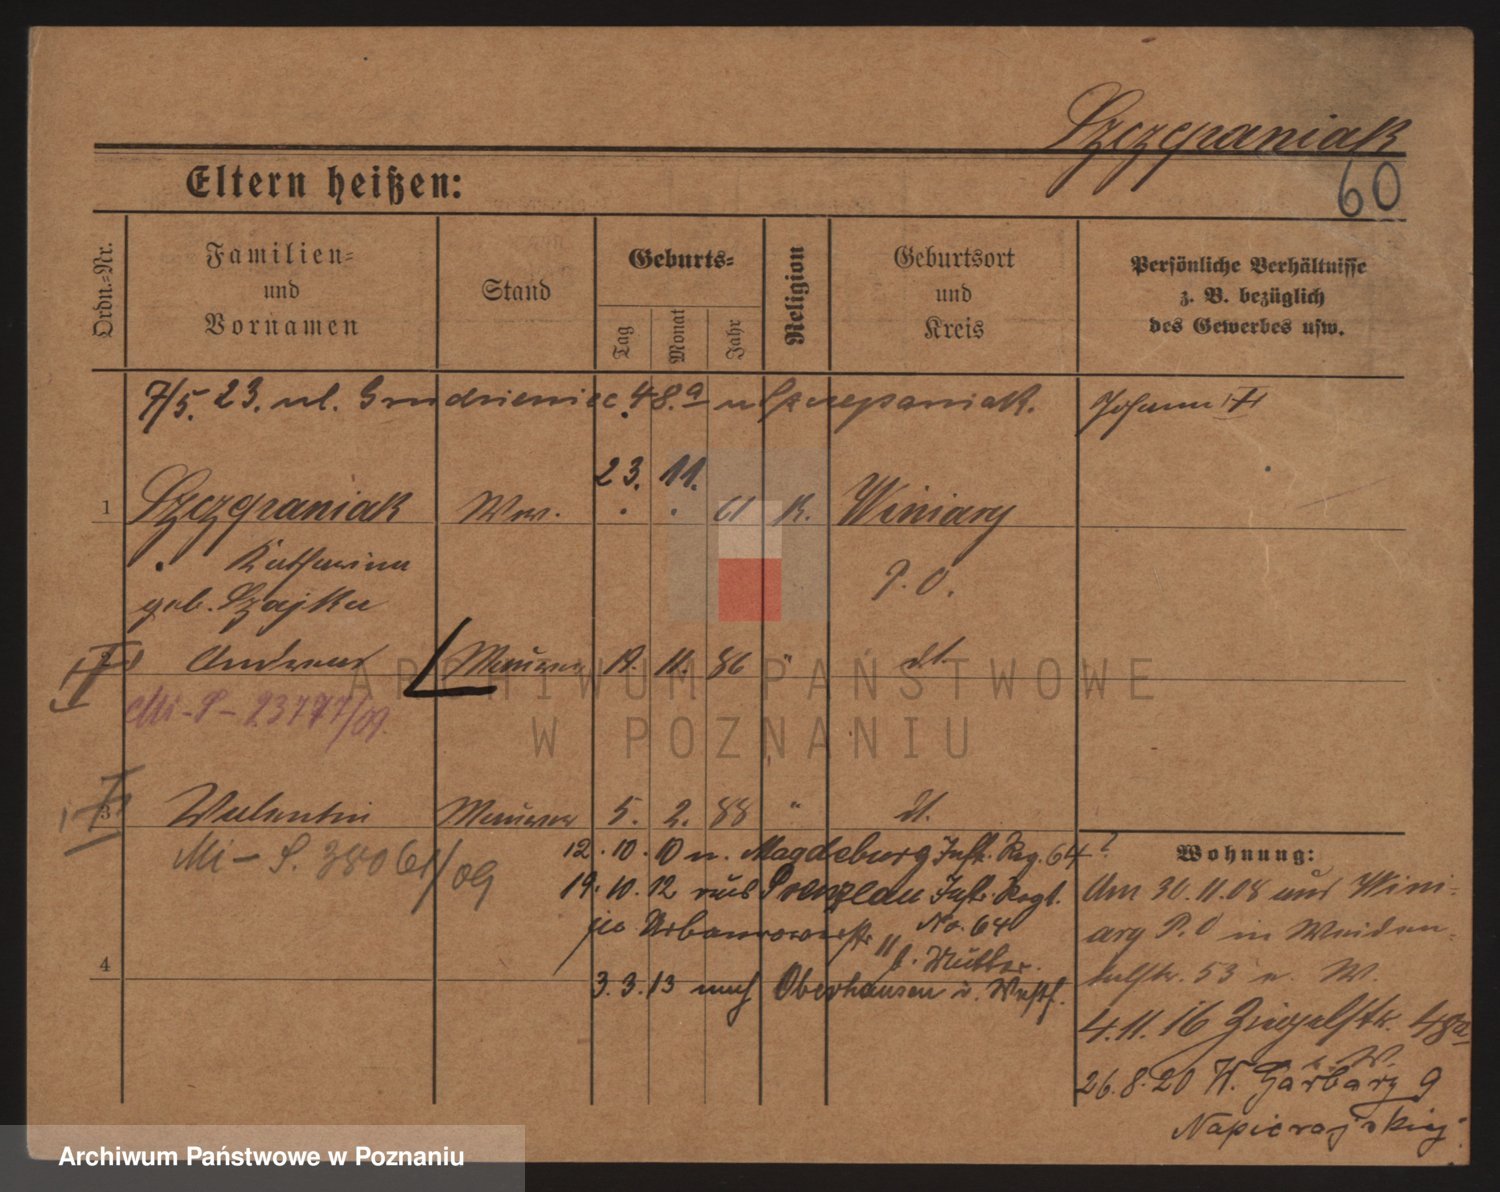 Szczepaniak
60
Eltern heißen:
Ordn.-Nr.
Familien-
und
Vornamen
Stand
Geburts-
Tag
Monat
Jahr
Religion
Geburtsort
und
Kreis
Persönliche Verhältnisse
z. B. bezüglich
des Gewerbes usw.
7/5. 23. ul. 48.a u Szczepaniak.
Johann
23. 11.
1 Szczepaniak Ww. 61 K. Winiary
Katharina
P. O.
geb. Szajka
2 Andreas Maurer 19. 11. 86 " dt.
Mi-P-23777/09.
ARCHIWUM PAŃSTWOWE
W POZNANIU
3 Valentin Maurer 5. 2. 88 " dt.
Mi-S. 38061/09
12. 10. 10 n. Magdeburg Inftr. Reg. 64?
19. 10. 12 aus Prenzlau Inftr. Regt.
No. 64
b. Mutter.
4
3. 3. 13 nach Oberhausen i. Westf.
Wohnung:
Am 30. 11. 08 aus Wini-
ary P. O in Weiden-
str. 53 W.
4. 11. 16 Ziegelstr. 48a
b. W.
26. 8. 20 W. Garbary 9
Napierajskiej
Archiwum Państwowe w Poznaniu